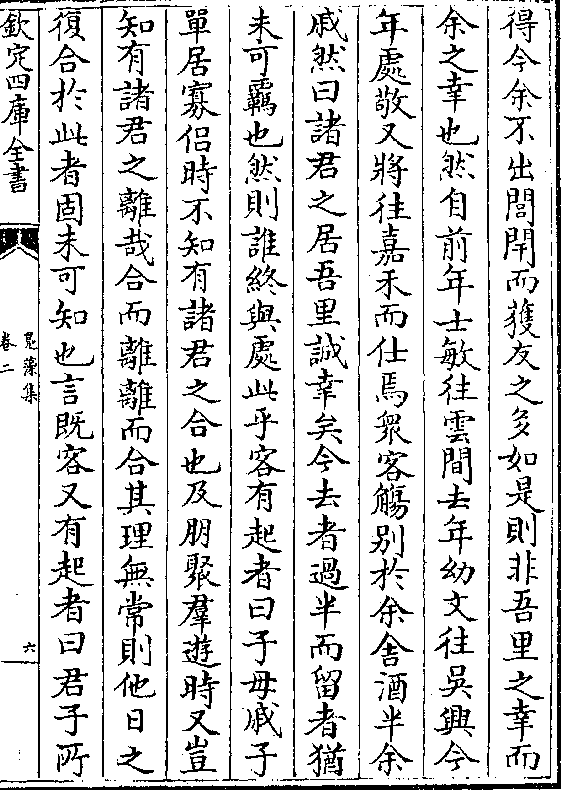 得今余不出閭閈而獲友之多如是則非吾里之幸而
余之幸也然自前年士敏往雲間去年幼文往吳興今
年處敬又將往嘉禾而仕焉衆客觴别於余舍酒半余
戚然曰諸君之居吾里誠幸矣今去者過半而留者猶
未可羈也然則誰終與處此乎客有起者曰子毋戚子
單居寡侣時不知有諸君之合也及朋聚羣遊時又豈
知有諸君之離哉合而離離而合其理無常則他日之
復合於此者固未可知也言既客又有起者曰君子所
欽定四庫全書
鳬藻集
卷二
六